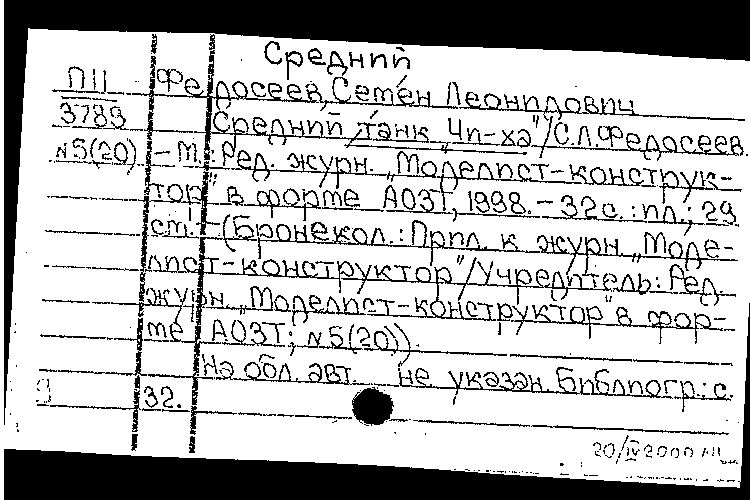 Средний
П11 Федосеев, Семён Леонидович
3789 Средний танк „Чи-ха"/С.Л.Федосеев.
N5(20) – М.: Ред. журн. „Моделист-конструк-
тор" в форме АОЗТ, 1998. – 32с.: ил.; 29
см. – (Бронекол.: Прил. к журн. „Моде-
лист-конструктор"/Учредитель: Ред.
журн. „Моделист-конструктор" в фор-
ме АОЗТ; N5(20)).
На обл. авт. не указан. Библиогр.: с.
32.
20/IV 2000